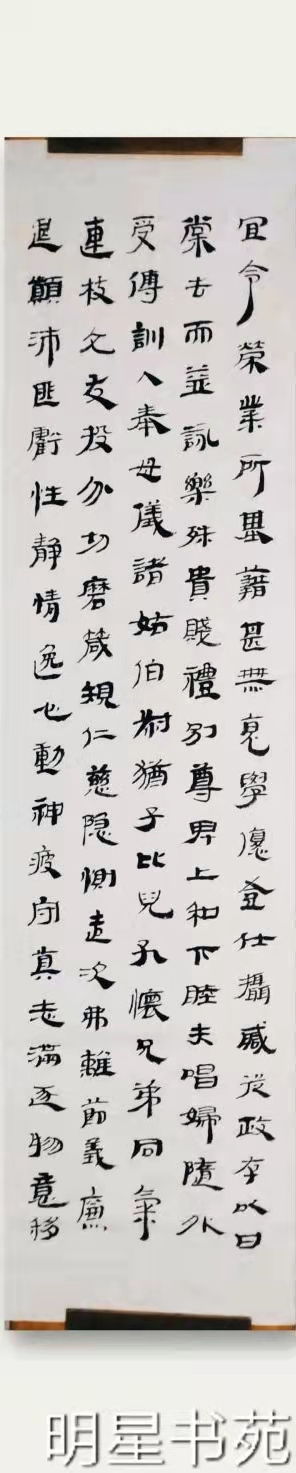 宜令榮業所基藉甚無竟學優登仕攝職從政存以甘
棠去而益詠樂殊貴賤禮別尊卑上和下睦夫唱婦隨外
受傅訓入奉母儀諸姑伯叔猶子比兒孔懷兄弟同氣
連枝交友投分切磨箴規仁慈隐惻造次弗離節義廉
退顛沛匪虧性静情逸心動神疲守真志滿逐物意移
明星书苑